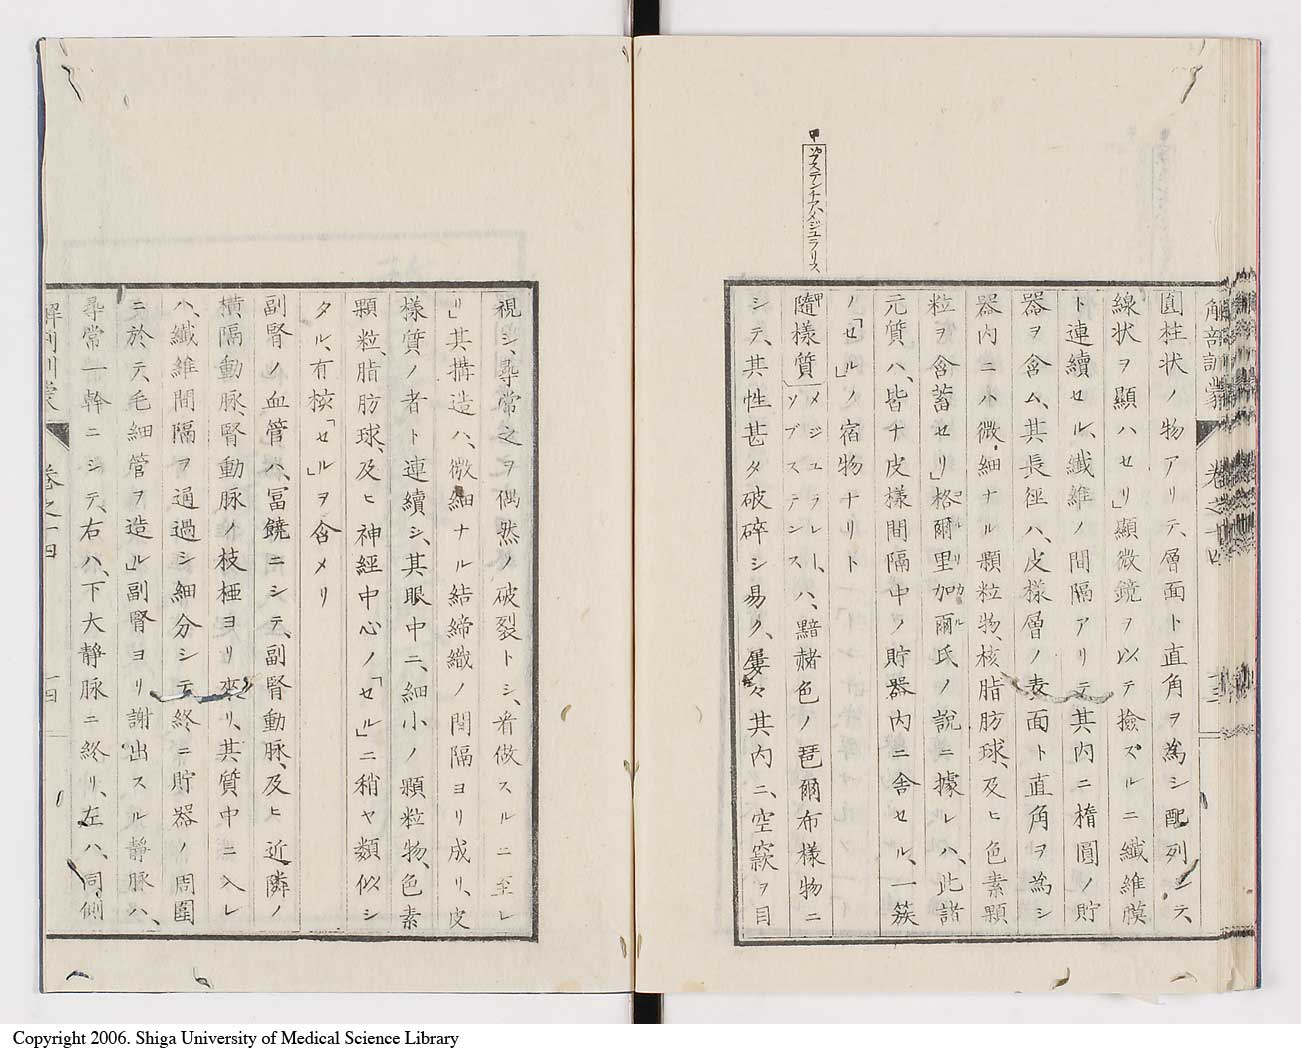 解剖訓蒙 卷之十四 十三
圓柱状ノ物アリテ、層面ト直角ヲ為シ配列シテ、
線状ヲ顯ハセリ」顯微鏡ヲ以テ撿スルニ纖維膜
ト連續セル、纖維ノ間隔アリテ其内ニ楕圓ノ貯
器ヲ含ム、其長徑ハ、皮様層ノ表面ト直角ヲ為シ
器内ニハ微細ナル顆粒物、核脂肪球、及ヒ色素顆
粒ヲ含蓄セリ」格爾里加爾氏ノ説ニ據レハ、此諸
コルリカル
元質ハ、皆ナ皮様間隔中ノ貯器内ニ舎セル、一簇
ノ「セル」ノ宿物ナリト
甲 ソブステンチア、メジュラリス
髄様質「メジュラレート、ソブステンス」ハ、黯赭色ノ琶爾布様物ニ
甲
シテ、其性甚タ破碎シ易ク、屡々其内ニ、空竅ヲ目
視シ、尋常之ヲ偶然ノ破裂トシ、看做スルニ至レ
リ」其搆造ハ、微細ナル結締織ノ間隔ヨリ成リ、皮
様質ノ者ト連續シ、其眼中ニ、細小ノ顆粒物、色素
顆粒、脂肪球、及ヒ神經中心ノ「セル」ニ稍ヤ類似シ
タル、有核「セル」ヲ含メリ
副腎ノ血管ハ、冨饒ニシテ、副腎動脈、及ヒ近隣ノ
横隔動脈、腎動脈ノ枝極ヨリ來リ、其質中ニ入レ
ハ、纖維間隔ヲ通過シ細分シテ終ニ貯器ノ周圍
ニ於テ、毛細管ヲ造ル」副腎ヨリ謝出スル靜脈ハ、
尋常一幹ニシテ、右ハ、下大靜脈ニ終リ、左ハ、同側
解剖訓蒙 卷之十四 十四
Copyright 2006. Shiga University of Medical Science Library